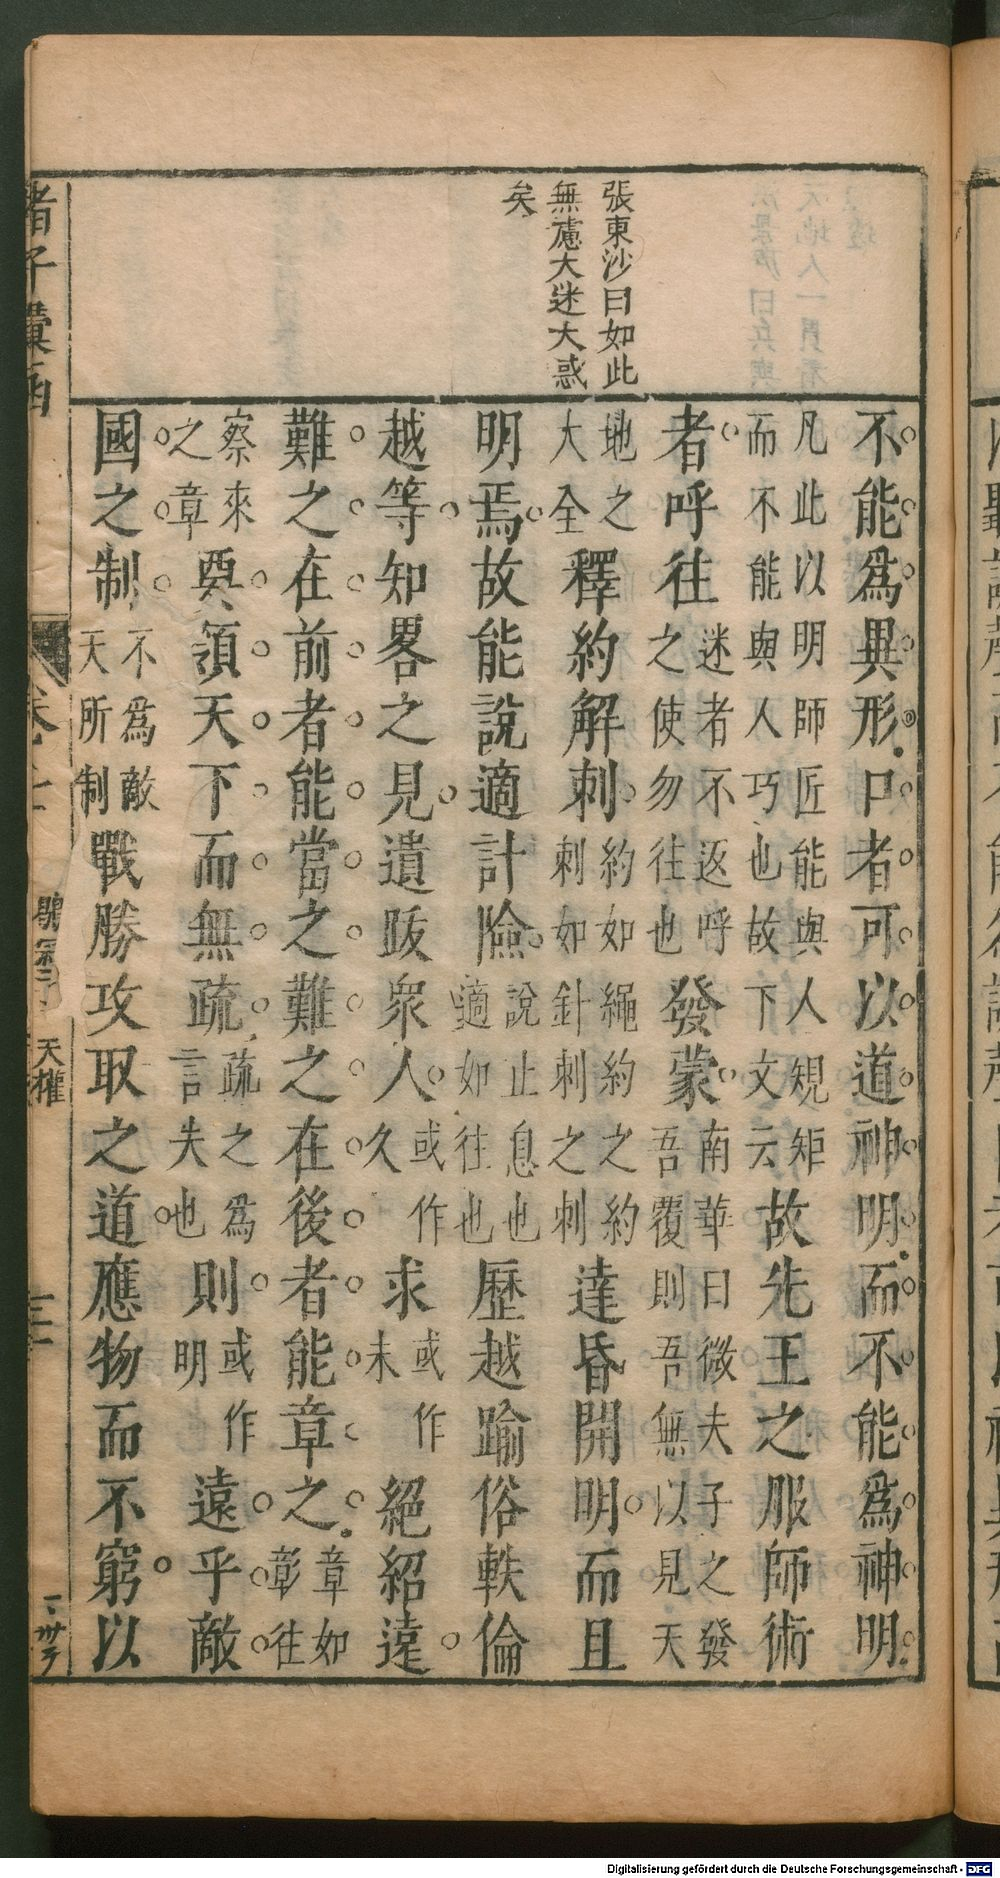 張東沙曰如此
無慮大迷大惑
矣
不能爲異形口者可以道神明而不能爲神明
凡此以明師匠能與人規矩
而不能與人巧也故下文云
故先王之服師術
者呼往
迷者不返呼
之使勿往也
發蒙
南華曰微夫子之發
吾覆則吾無以見天
地之
大全
釋約解刺
約如繩約之約
刺如針刺之刺
達昏開明而且
明焉故能說適計險
說止息也
適如往也
歷越踰俗軼倫
越等知畧之見遺跋衆人
或作
久
求
或作
未
絕紹遠
難之在前者能當之難之在後者能章之
章如
彰往
察來
之章
奠領天下而無疏
疏之爲
言失也
則
或作
明
遠乎敵
國之制
不爲敵
天所制
戰勝攻取之道應物而不窮以
諸子彙函
鶡冠子
天權
Digitalisierung gefördert durch die Deutsche Forschungsgemeinschaft - DFG